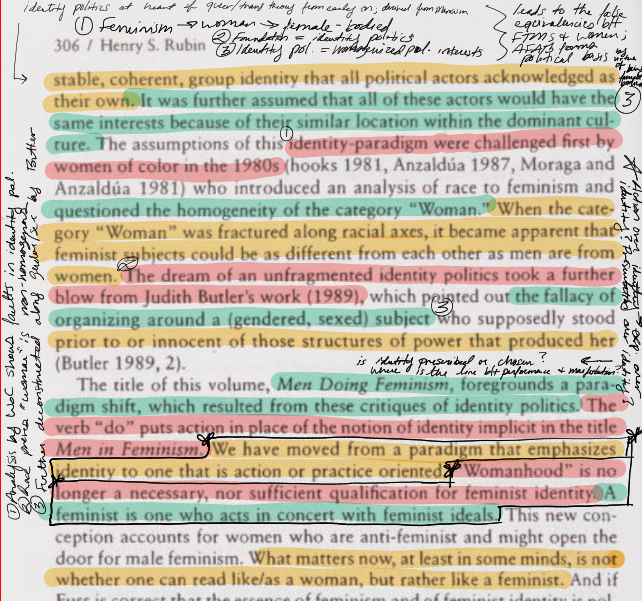 identity politics at heart of queer/trans theory from early on; derived from feminism
① Feminism → woman → female-bodied
② Foundation = identity politics
③ Identity pol. = homogenized pol. interests
leads to the false
equivalencies b/t
FTMs & women;
AFABs
political basis
306 / Henry S. Rubin
stable, coherent, group identity that all political actors acknowledged as
their own. It was further assumed that all of these actors would have the
③
same interests because of their similar location within the dominant cul-
①
ture. The assumptions of this identity-paradigm were challenged first by
women of color in the 1980s (hooks 1981, Anzaldúa 1987, Moraga and
Anzaldúa 1981) who introduced an analysis of race to feminism and
questioned the homogeneity of the category "Woman." When the cate-
gory "Woman" was fractured along racial axes, it became apparent that
feminist subjects could be as different from each other as men are from
②
women. The dream of an unfragmented identity politics took a further
blow from Judith Butler's work (1989), which pointed out the fallacy of
③
organizing around a (gendered, sexed) subject who supposedly stood
prior to or innocent of those structures of power that produced her
(Butler 1989, 2).
is identity prescribed or chosen?
where is the line b/t performance & manifestation?
The title of this volume, Men Doing Feminism, foregrounds a para-
digm shift, which resulted from these critiques of identity politics. The
verb "do" puts action in place of the notion of identity implicit in the title
Men in Feminism. We have moved from a paradigm that emphasizes
identity to one that is action or practice oriented. "Womanhood" is no
longer a necessary, nor sufficient qualification for feminist identity. A
feminist is one who acts in concert with feminist ideals. This new con-
ception accounts for women who are anti-feminist and might open the
door for male feminism. What matters now, at least in some minds, is not
whether one can read like/as a woman, but rather like a feminist. And if
Fuss is correct that the essence of feminism and of feminist identity is pol-
① Analysis by WOC shows faults in identity pol.
② "woman" is non-homogenous
③ Further deconstructed along gender/sex by Butler